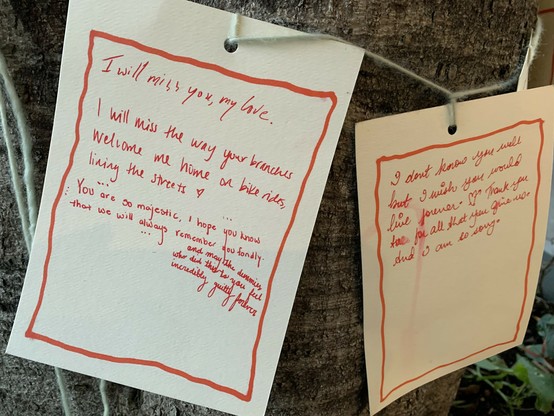 I will miss you, my love.
I will miss the way your branches
welcome me home on bike rides,
lining the streets ♡
You are so majestic, I hope you know
that we will always remember you fondly.
and may the dummies
who did this to you feel
incredibly guilty forever
I dont know you well
but I wish you would
live forever. ♡ Thank you
for all that you give us.
And I am so sorry.